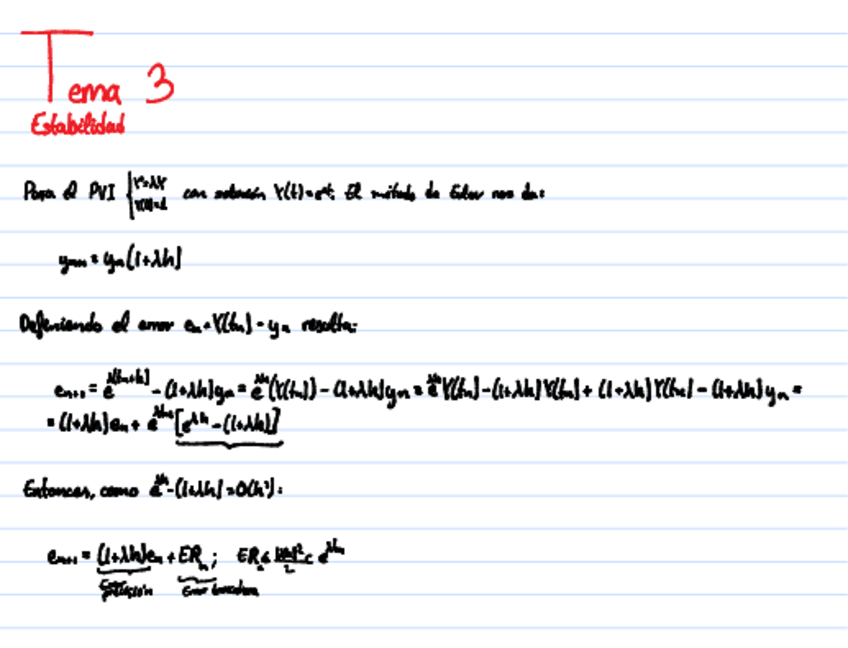 Tema 3
Estabilidad
Para el PVI { Y'=λY con solución Y(t)=e^λt. El método de Euler nos da:
Y(0)=1
yₙ₊₁ = yₙ(1+λh)
Definiendo el error eₙ = Y(tₙ) - yₙ resulta:
eₙ₊₁ = e^λ(tₙ+h) - (1+λh)yₙ = e^λh(Y(tₙ)) - (1+λh)yₙ = e^λh Y(tₙ) - (1+λh)Y(tₙ) + (1+λh)Y(tₙ) - (1+λh)yₙ =
= (1+λh)eₙ + e^λtₙ [e^λh - (1+λh)]
Entonces, como e^λh - (1+λh) = O(h²):
eₙ₊₁ = (1+λh)eₙ + ERₙ; ERₙ ≤ |λh|²/2 c e^λtₙ
Error
Error